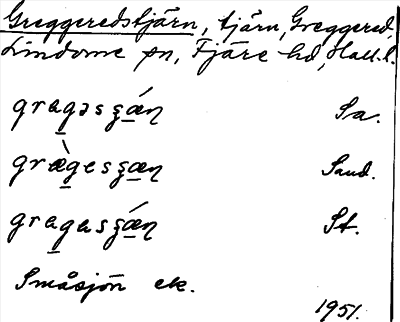 Greggeredstjärn, tjärn, Greggered.
Lindome sn, Fjäre hd, Hall. l.
gragəsʂán Sa.
græ̀gesʂæn Sand.
gragasʂán St.
Småsjön ek.
1951.